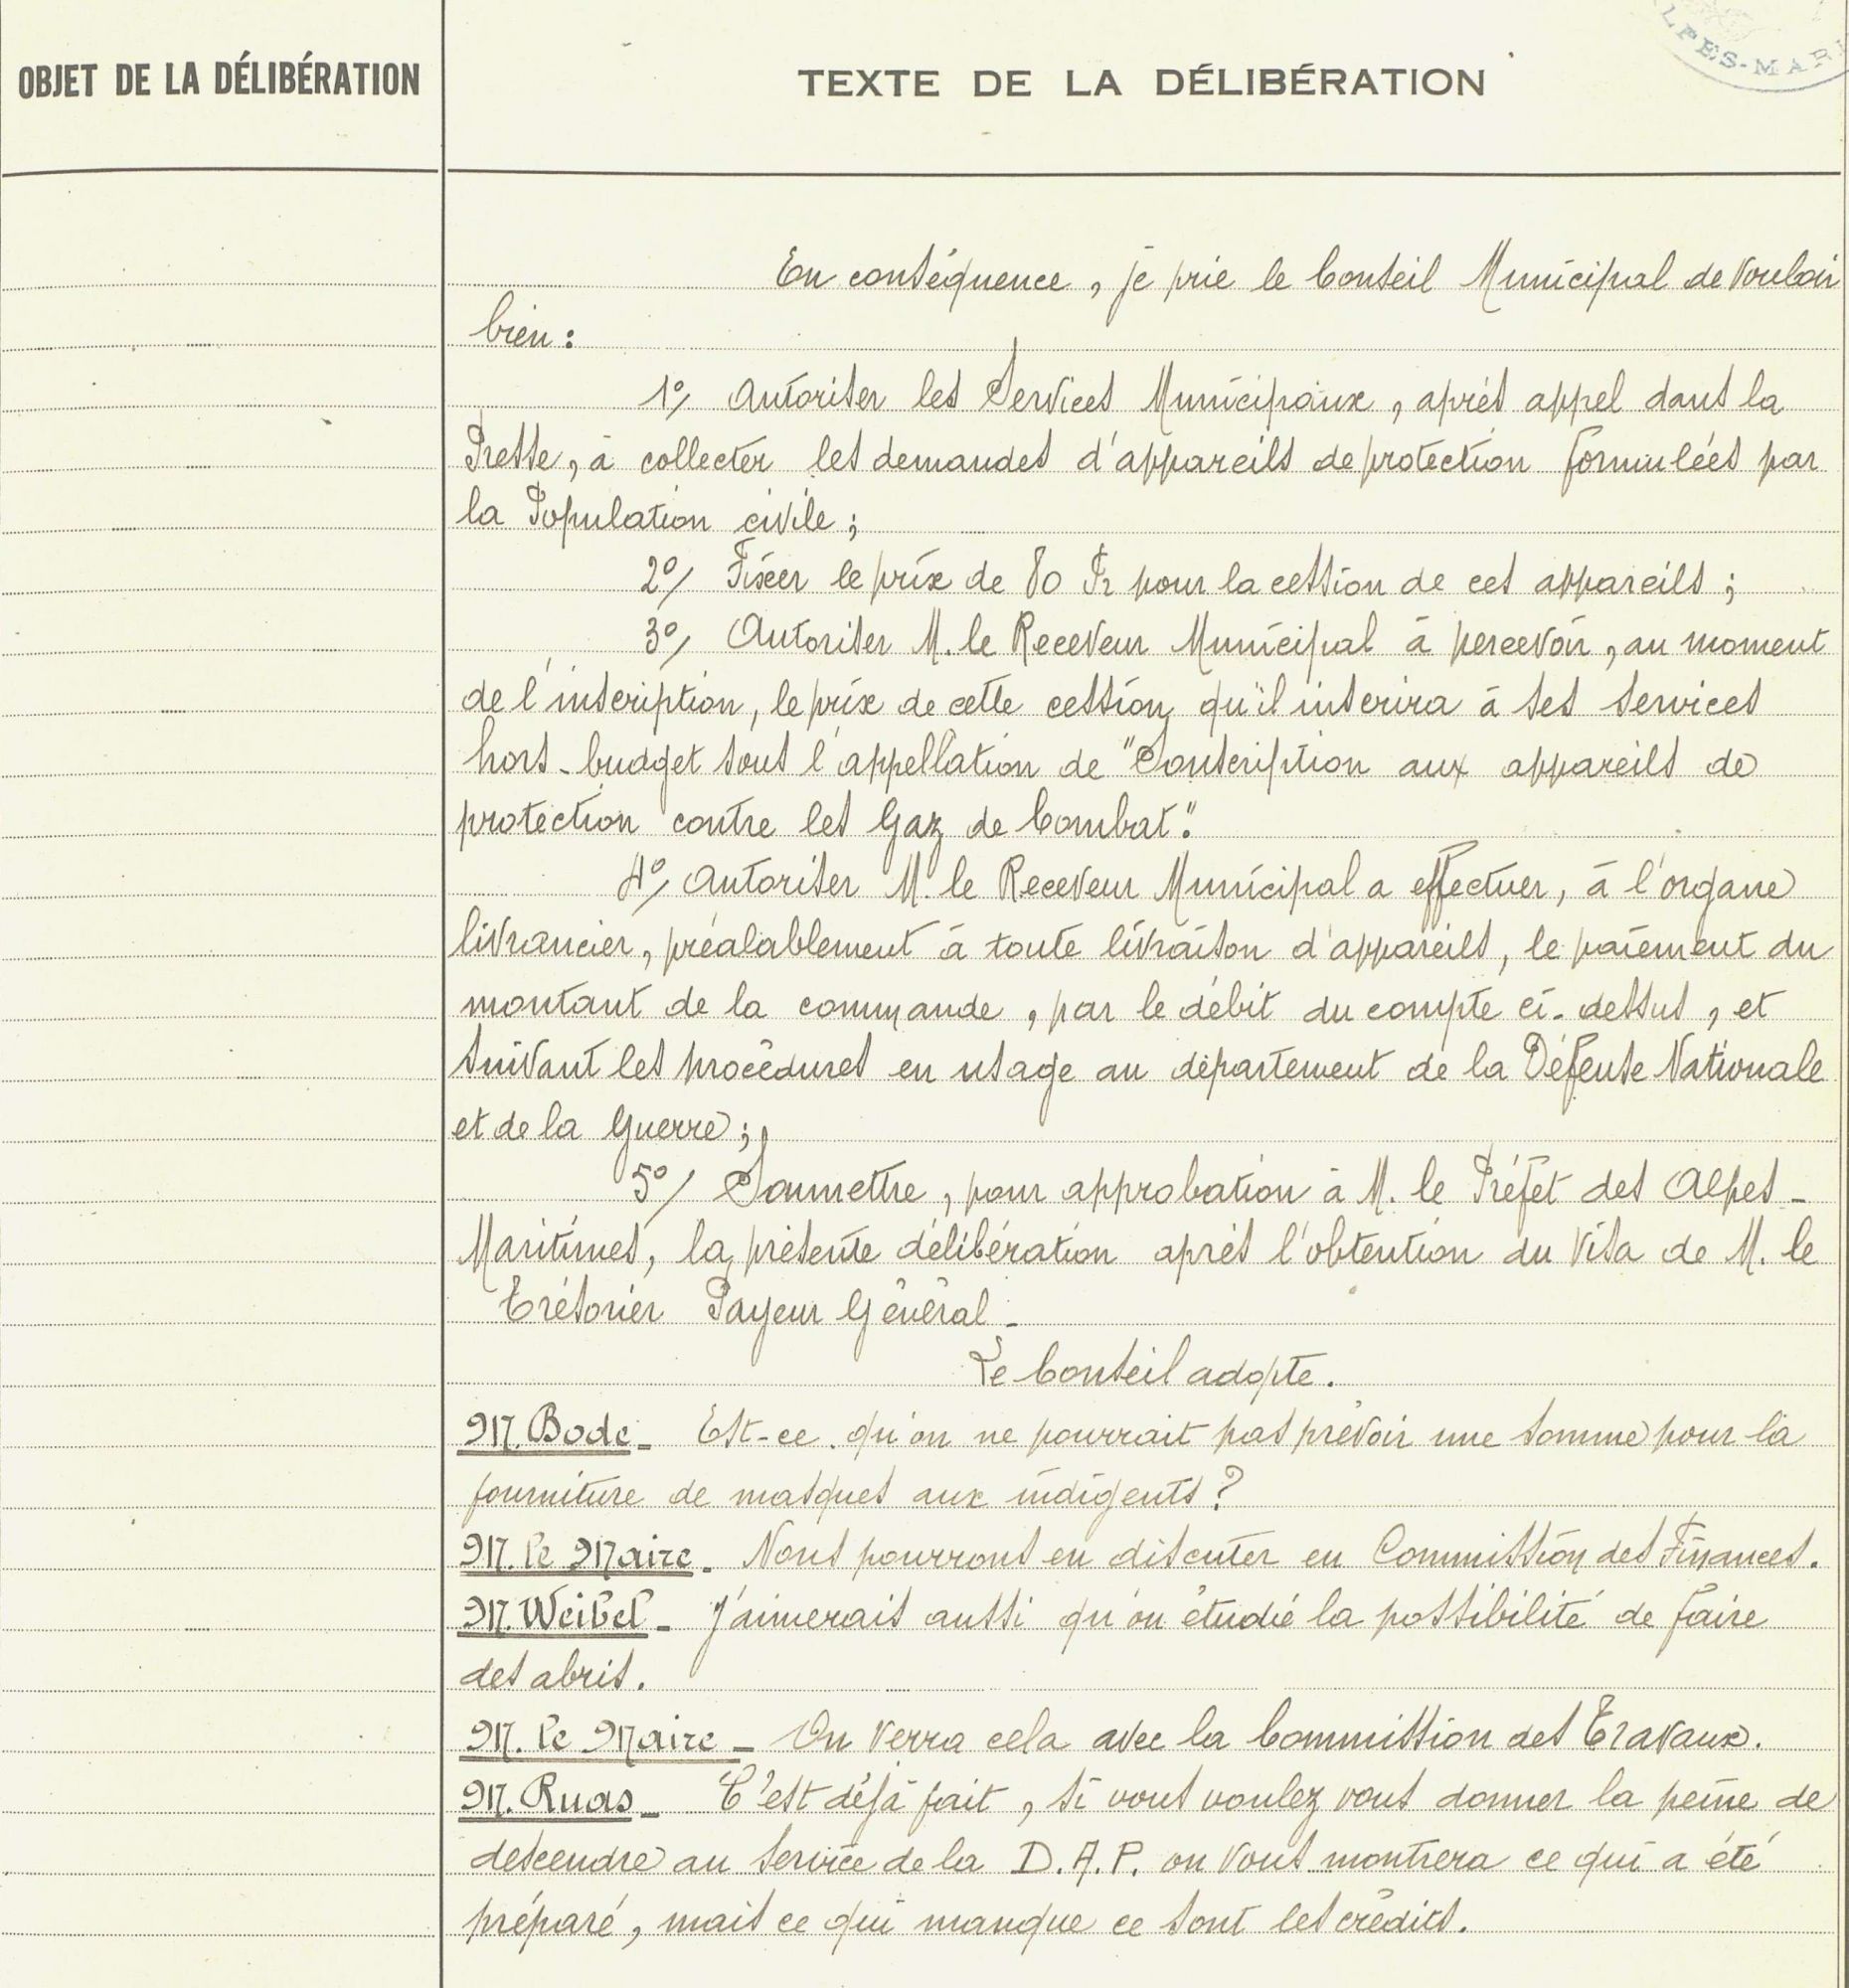 OBJET DE LA DÉLIBÉRATION
TEXTE DE LA DÉLIBÉRATION
LPES-MARI
En conséquence, je prie le Conseil Municipal de vouloir
bien :
1°/ Autoriser les Services Municipaux, après appel dans la
Presse, à collecter les demandes d'appareils de protection formulées par
la Population civile ;
2°/ Fixer le prix de 80 Fr pour la cession de ces appareils ;
3°/ Autoriser M. le Receveur Municipal à percevoir, au moment
de l'inscription, le prix de cette cession, qu'il inscrira à ses services
hors-budget sous l'appellation de "Souscription aux appareils de
protection contre les Gaz de Combat".
4°/ Autoriser M. le Receveur Municipal a effectuer, à l'organe
livrancier, préalablement à toute livraison d'appareils, le paiement du
montant de la commande, par le débit du compte ci-dessus, et
suivant les procédures en usage au département de la Défense Nationale
et de la Guerre ;
5°/ Soumettre, pour approbation à M. le Préfet des Alpes-
Maritimes, la présente délibération après l'obtention du visa de M. le
Trésorier Payeur Général.
Le Conseil adopte.
M. Bode - Est-ce qu'on ne pourrait pas prévoir une somme pour la
fourniture de masques aux indigents ?
M. le Maire - Nous pourrons en discuter en Commission des Finances.
M. Weibel - J'aimerais aussi qu'on étudie la possibilité de faire
des abris.
M. le Maire - On verra cela avec la Commission des Travaux.
M. Ruas - C'est déjà fait, si vous voulez vous donner la peine de
descendre au service de la D.A.P. on vous montrera ce qui a été
préparé, mais ce qui manque ce sont les crédits.